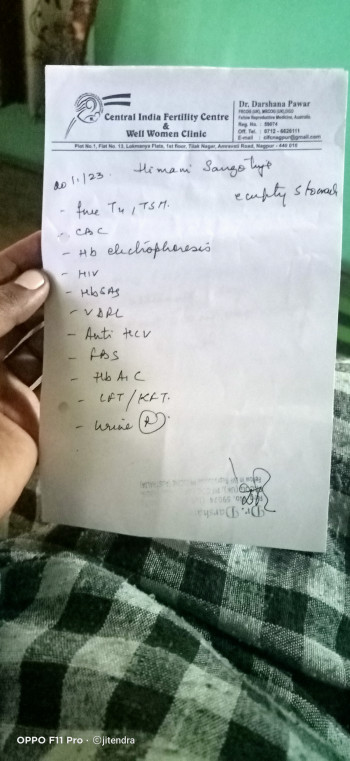 Central India Fertility Centre
&
Well Women Clinic
Dr. Darshana Pawar
Fellow Reproductive Medicine, Australia
Reg. No. : 59674
Off. Tel. : 0712 - 6629111
E-mail :
Plot No.1, Flat No. 13, Lokmanya Flats, 1st floor, Tilak Nagar, Amravati Road, Nagpur - 440 010
20/1/23. Himani
empty stomach
- free T4, TSH.
- CBC
- Hb electrophoresis
- HIV
- HbSAg
- VDRL
- Anti HCV
- FBS
- HbA1C
- LFT/KFT.
- Urine R.
Dr. Darsha
OPPO F11 Pro · ©jitendra